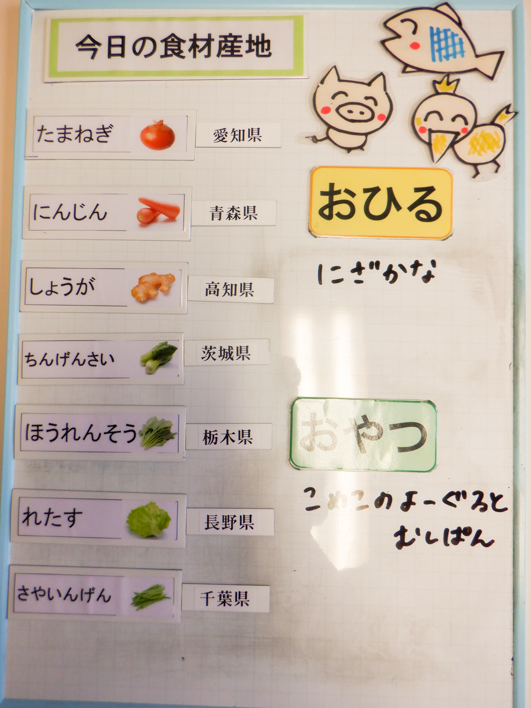 今日の食材産地
たまねぎ 愛知県
にんじん 青森県
しょうが 高知県
ちんげんさい 茨城県
ほうれんそう 栃木県
れたす 長野県
さやいんげん 千葉県
おひる
にざかな
おやつ
こめこのよーぐると
むしぱん